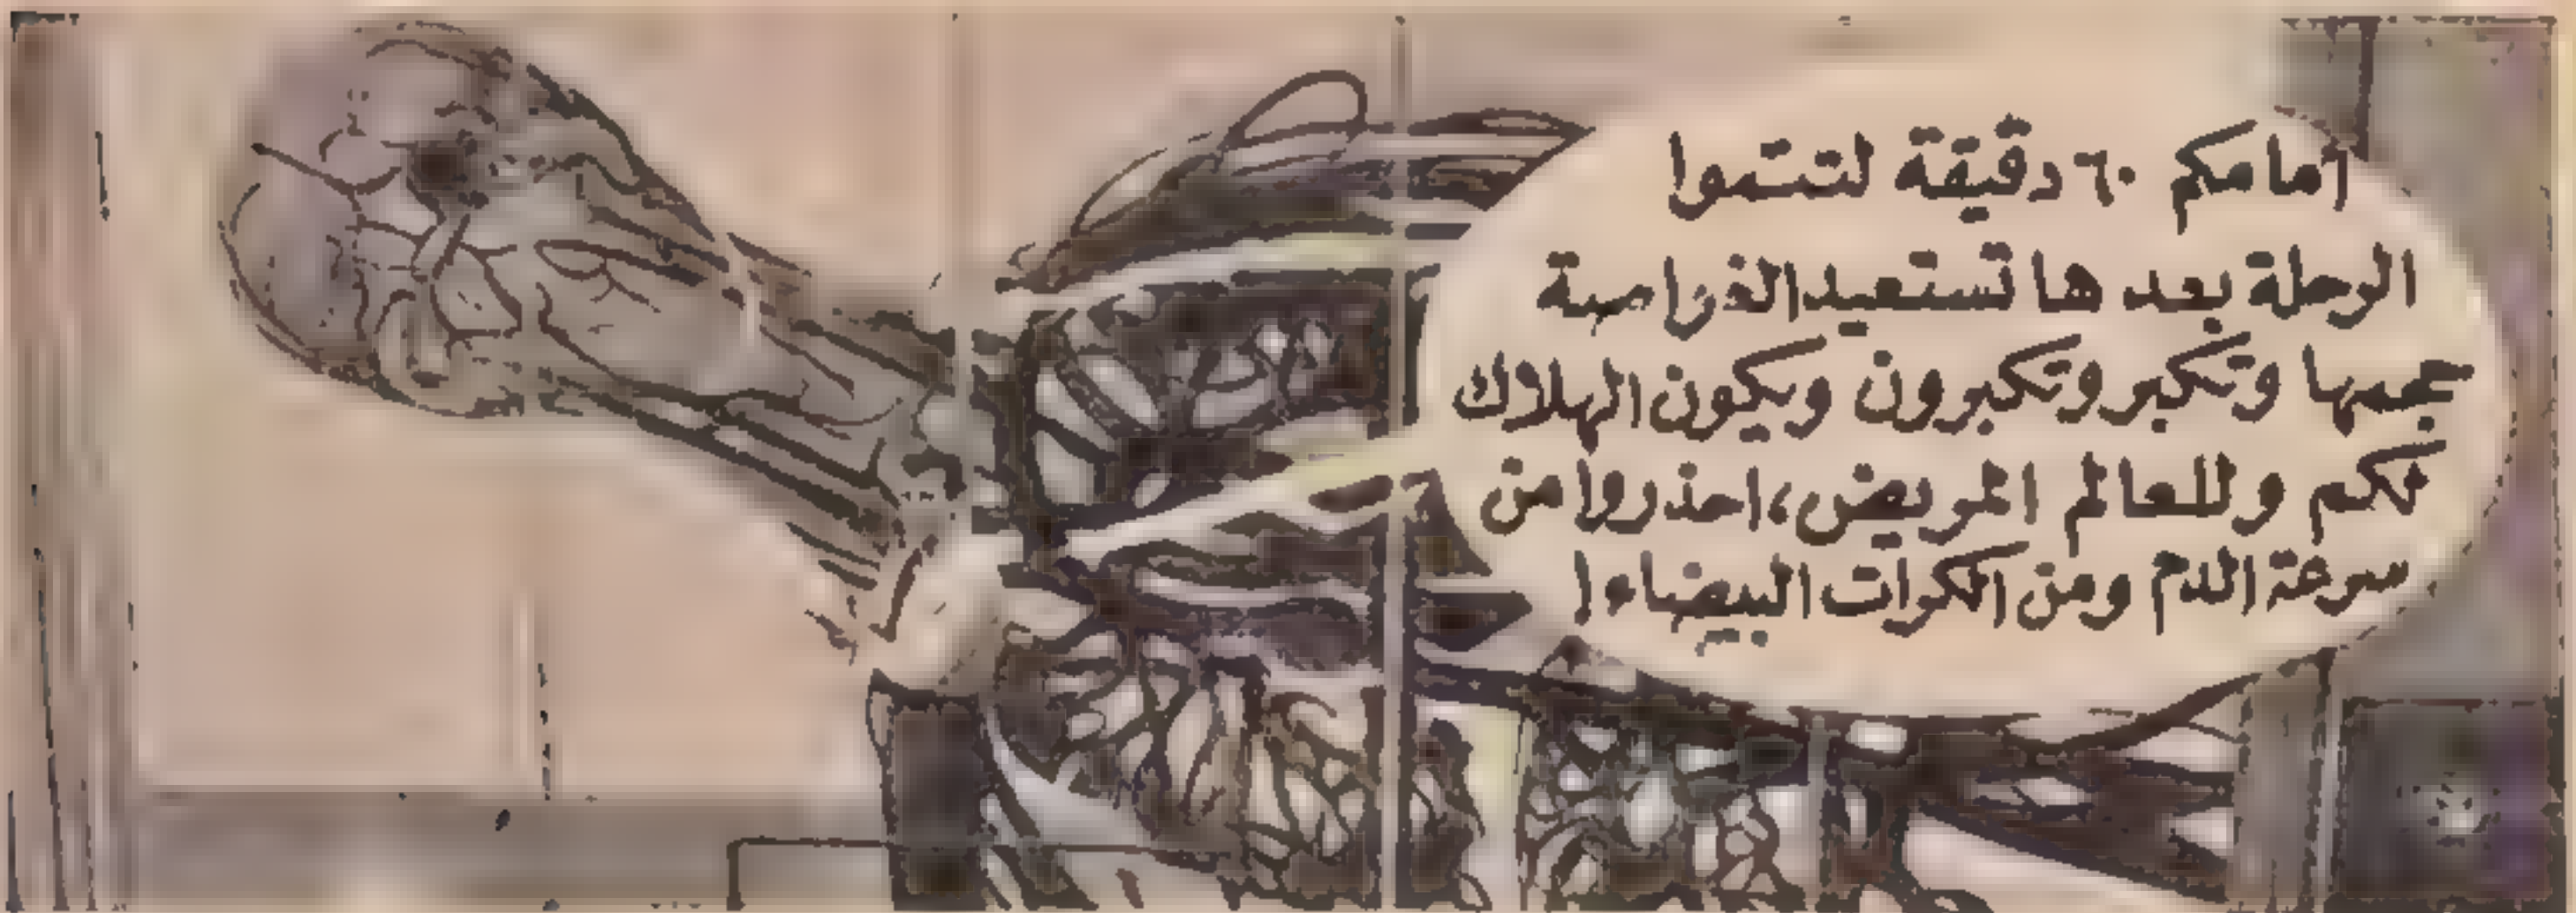 أمامكم ٦٠ دقيقة لتتموا
الرحلة بعدها تستعيد الغواصة
حجمها وتكبر وتكبرون ويكون الهلاك
لكم وللعالم المريض، احذروا من
سرعة الدم ومن الكرات البيضاء!